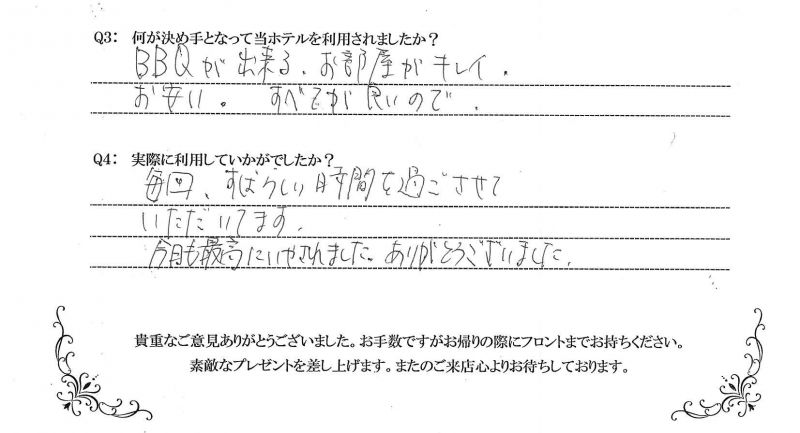 Q3: 何が決め手となって当ホテルを利用されましたか?
BBQが出来る、お部屋がキレイ、
お安い。 すべてが良いので、
Q4: 実際に利用していかがでしたか?
毎回、すばらしい時間を過ごさせて
いただいてます。
今月も最高にいやされました。ありがとうございました。
貴重なご意見ありがとうございました。お手数ですがお帰りの際にフロントまでお持ちください。
素敵なプレゼントを差し上げます。またのご来店心よりお待ちしております。